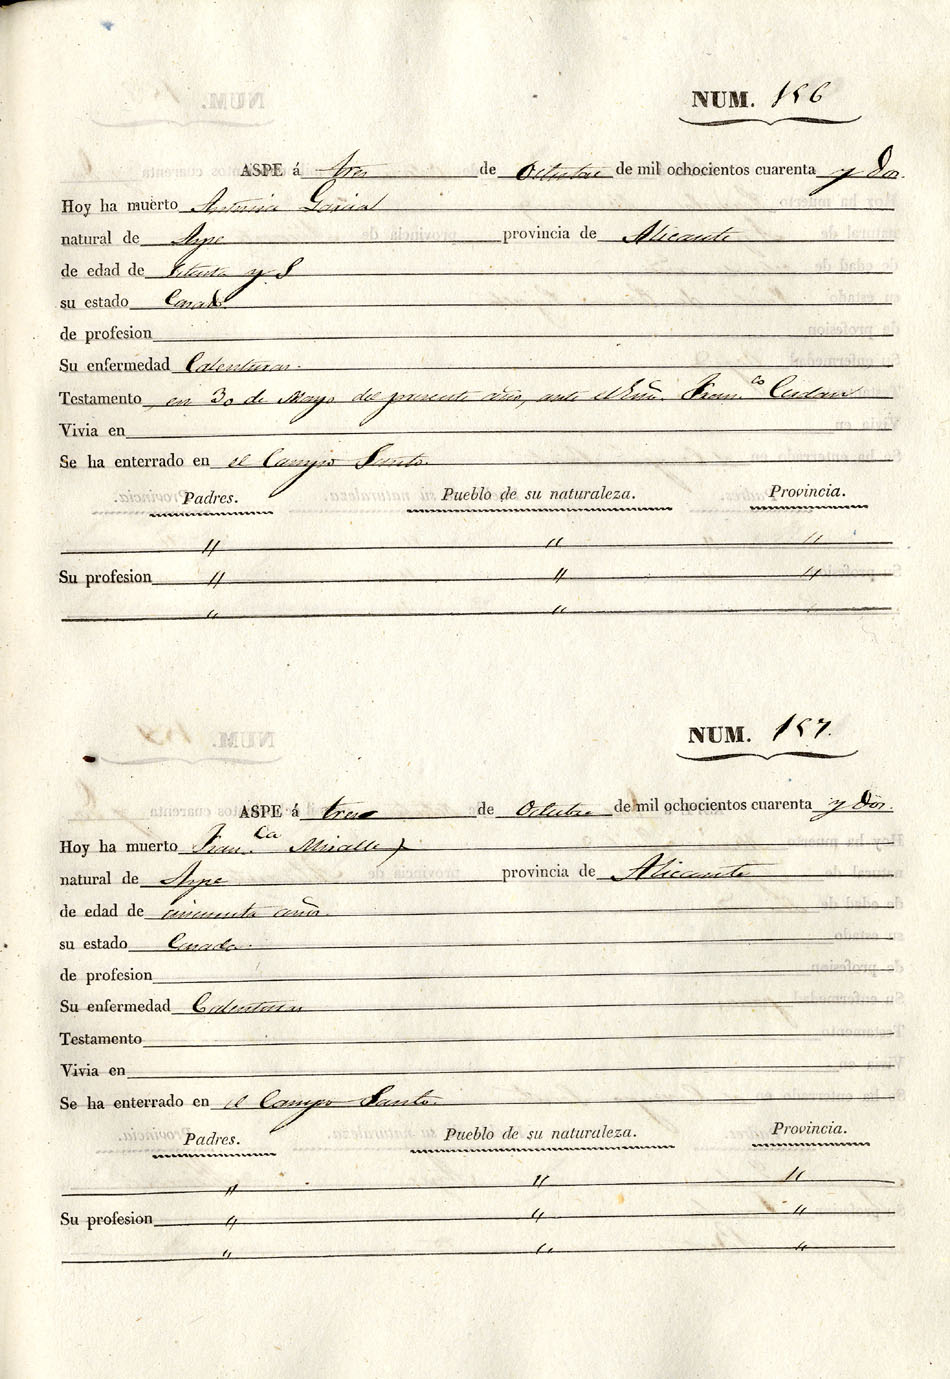 NUM. 156
ASPE á tres de Octubre de mil ochocientos cuarenta y Dos.
Hoy ha muerto Antonia
natural de Aspe provincia de Alicante
de edad de y
su estado
de profesion
Su enfermedad Calenturas.
Testamento en 30 de Mayo del presente año, ante el Fran.co
Vivia en
Se ha enterrado en el Campo Santo.
Padres. Pueblo de su naturaleza. Provincia.
" " "
Su profesion " " "
" "
NUM. 157.
ASPE á tres de Octubre de mil ochocientos cuarenta y Dos.
Hoy ha muerto Fran.ca Miralles
natural de Aspe provincia de Alicante
de edad de cincuenta años.
su estado Casada.
de profesion
Su enfermedad Calenturas
Testamento
Vivia en
Se ha enterrado en el Campo Santo.
Padres. Pueblo de su naturaleza. Provincia.
" " "
Su profesion " " "
" " "